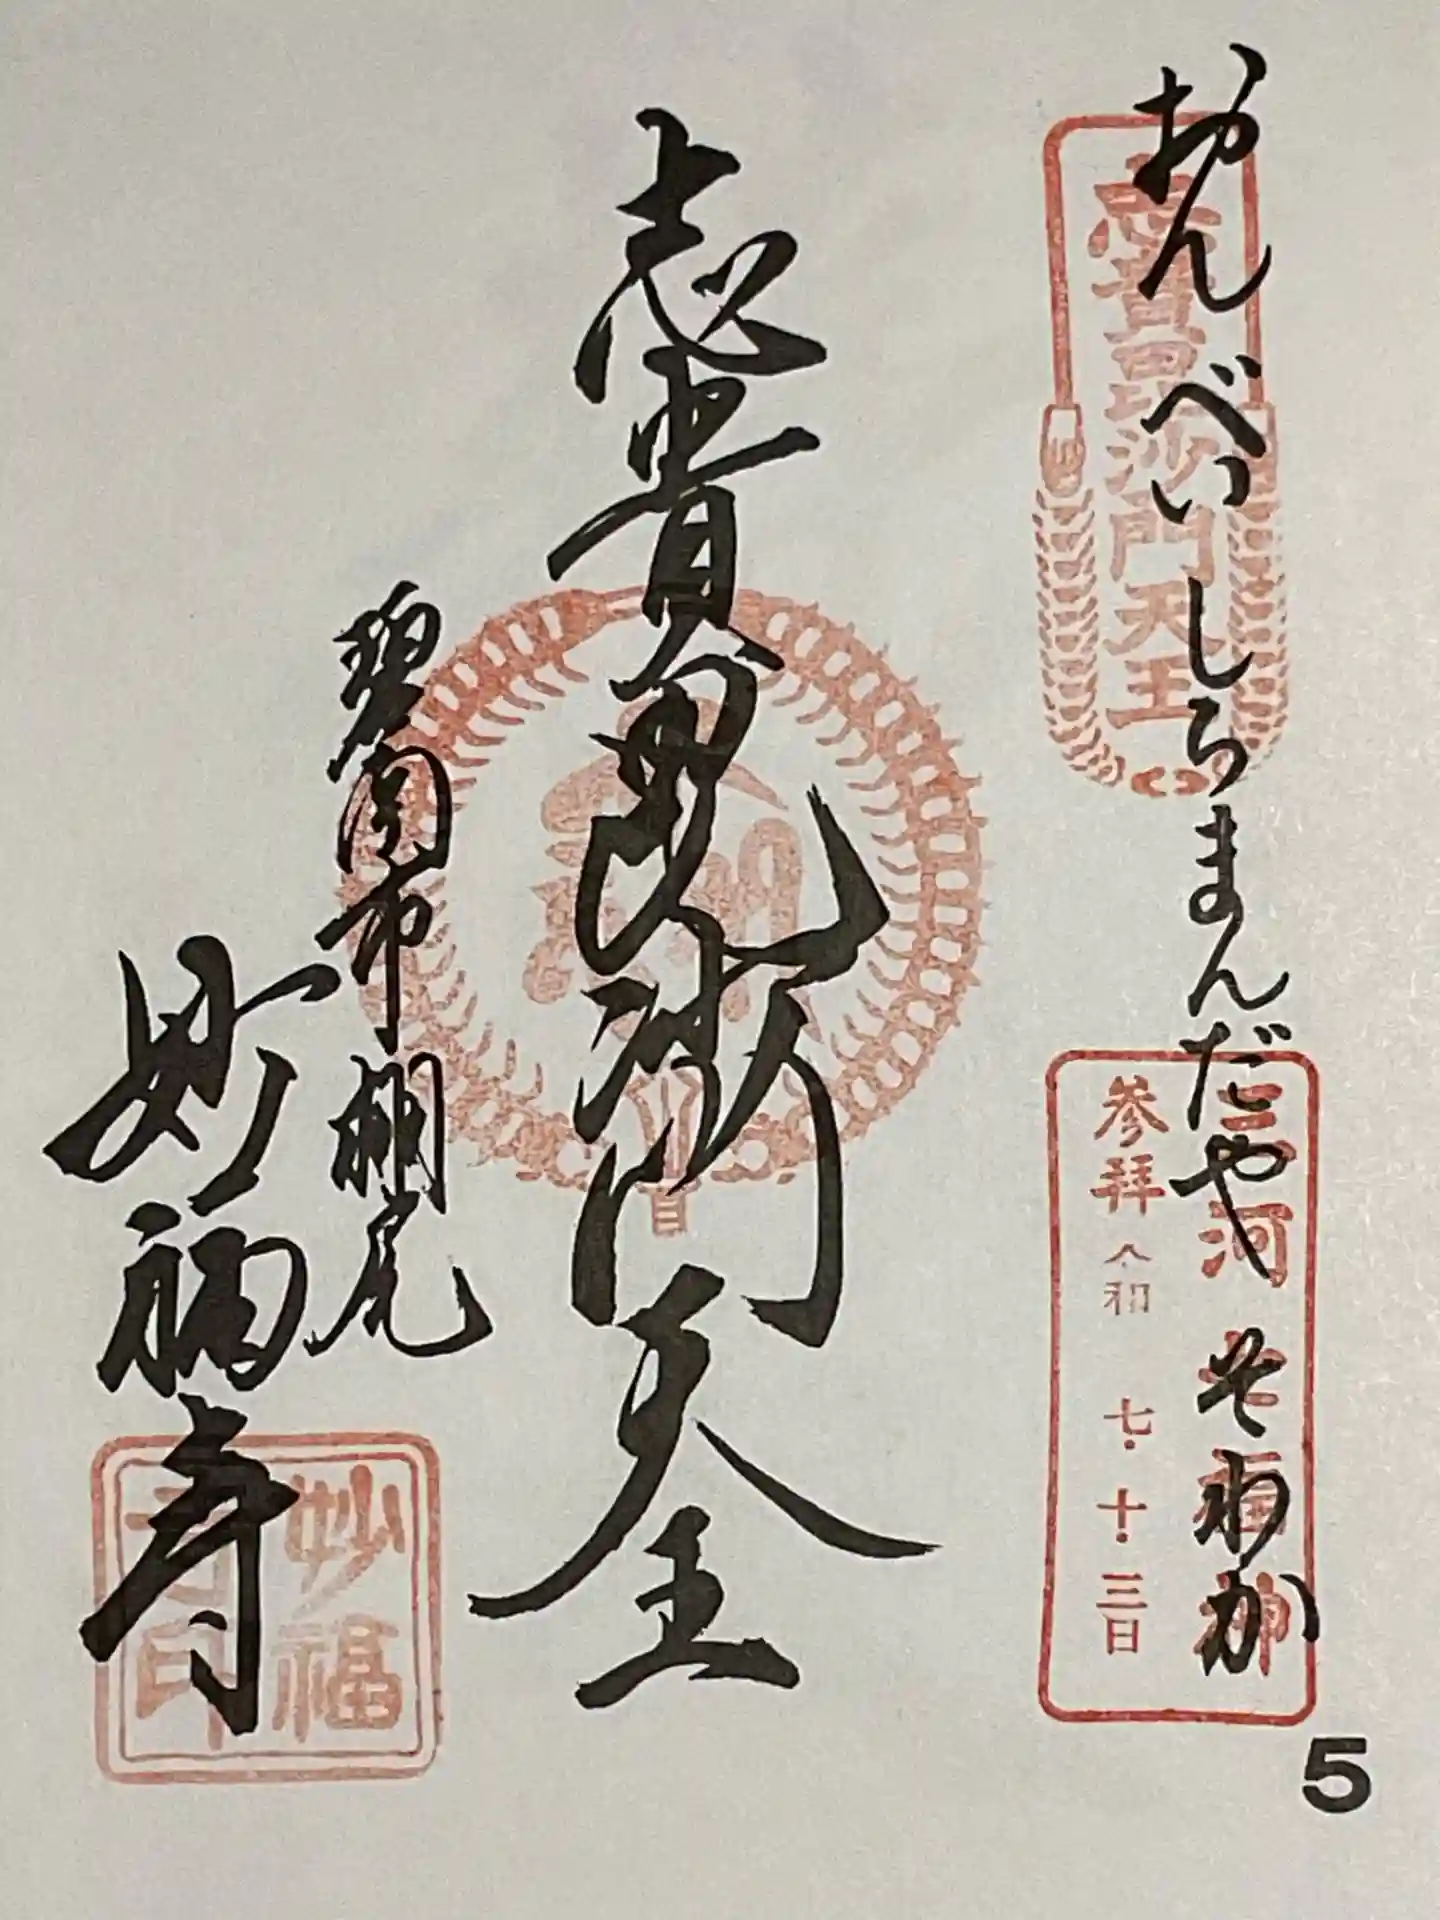 おん べいしらまんだや そわか
志貴毘沙門天王
三河 七福神
参拝 令和 七・十・三日
志貴毘沙門天王
碧南市棚尾
妙福寺
妙福
寺印
5